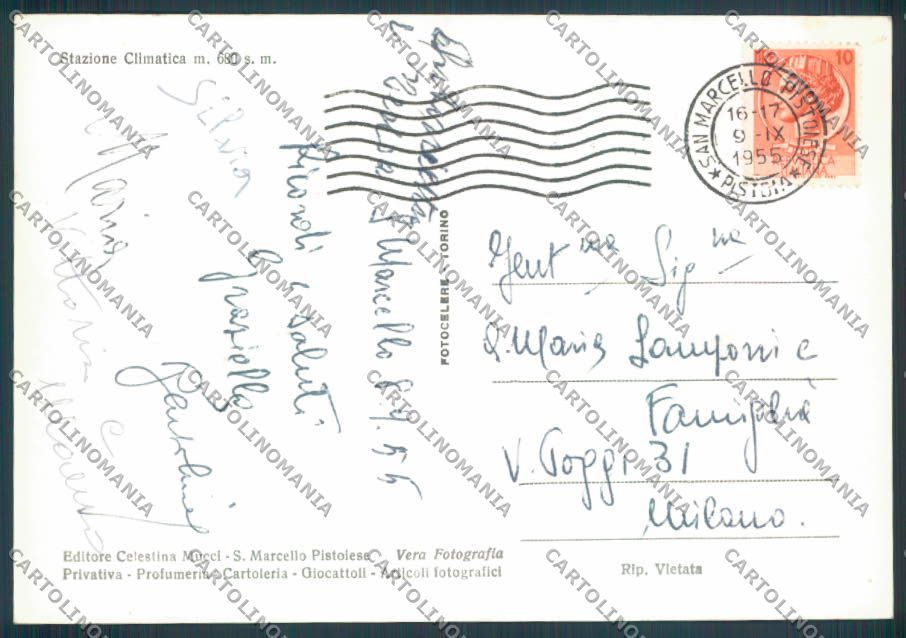 Stazione Climatica m. 680 s. m.
10
SAN MARCELLO PISTOIESE
16-17
9-IX
1955
* PISTOIA *
S. Marcello 8.9.55
Ricordi e saluti
Graziella
Silvia
Maria
Vittoria e
FOTOCELERE - TORINO
Gent ma Sig na
Maria Lamponi e
Famiglia
V. Poggi 31
Milano.
Editore Celestina Mucci - S. Marcello Pistoiese Vera Fotografia
Privativa - Profumeria - Cartoleria - Giocattoli - Articoli fotografici
Rip. Vietata
CARTOLINOMANIA